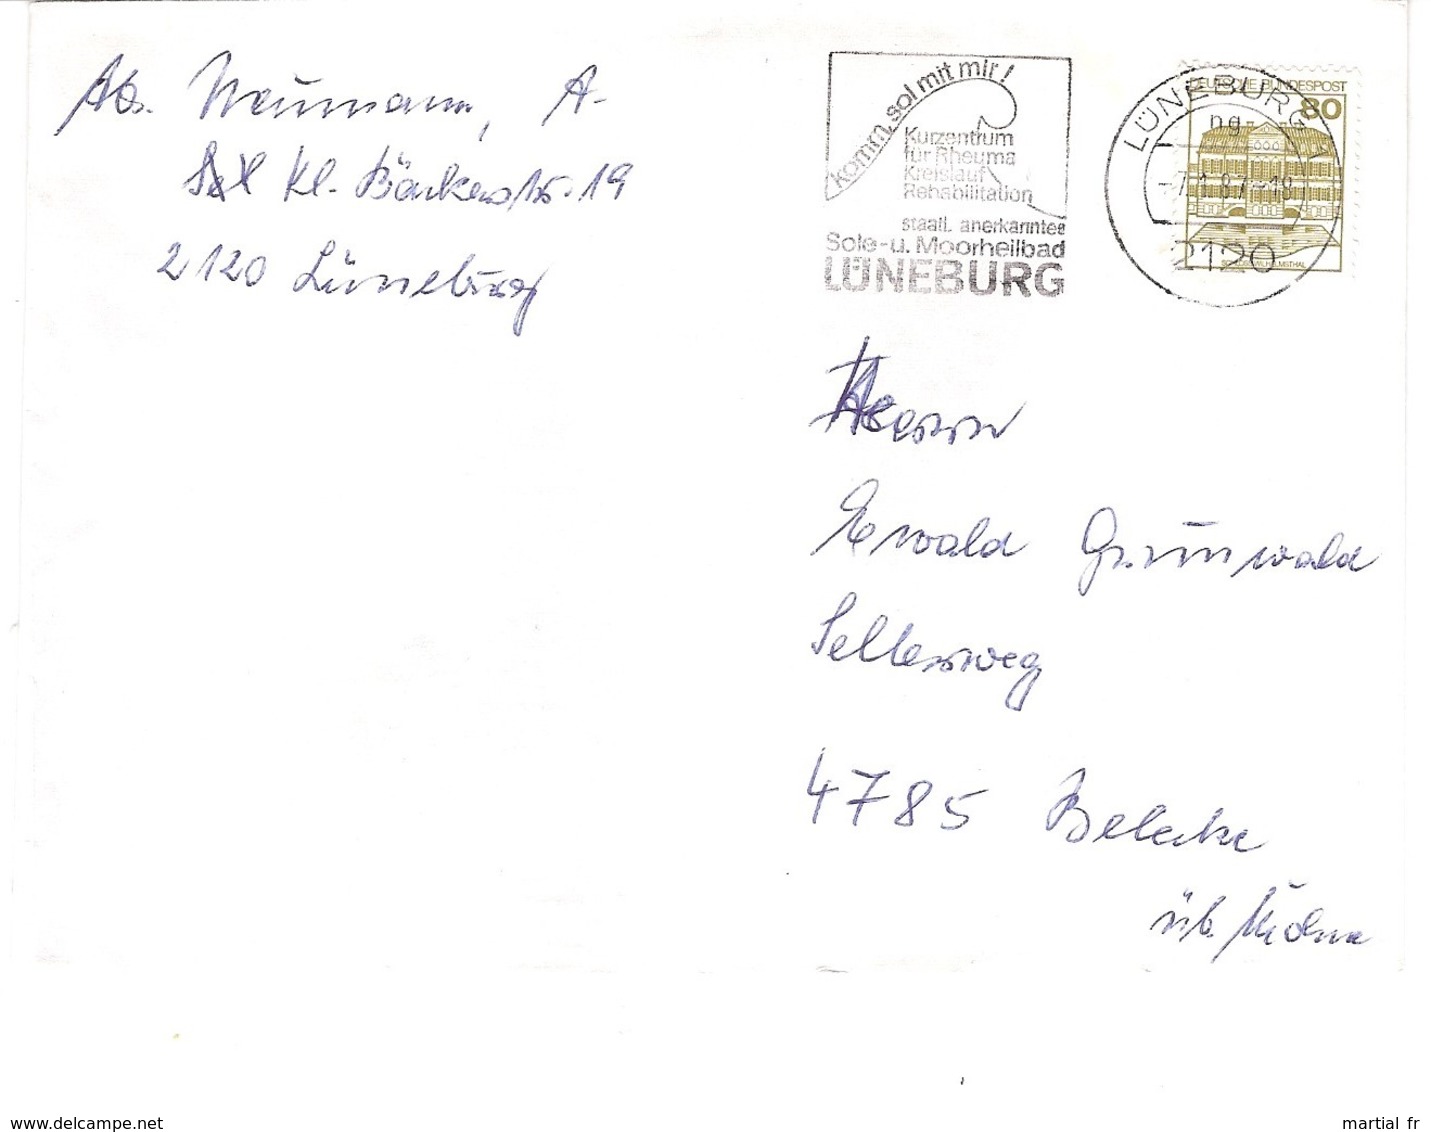 Abs. Neumann, A.
Kl. Bäckerstr. 19
2120 Lüneburg
komm, sol mit mir!
Kurzentrum
für Rheuma
Kreislauf
Rehabilitation
staatl. anerkanntes
Sole-u. Moorheilbad
LÜNEBURG
LÜNEBURG 1
ng
-7.1.87-19
2120
DEUTSCHE BUNDESPOST
80
SCHLOSS WILHELMSTHAL
Herrn
Ewald Grunwald
Sellerweg
4785 Belecke
üb. Möhne
www.delcampe.net
martial fr